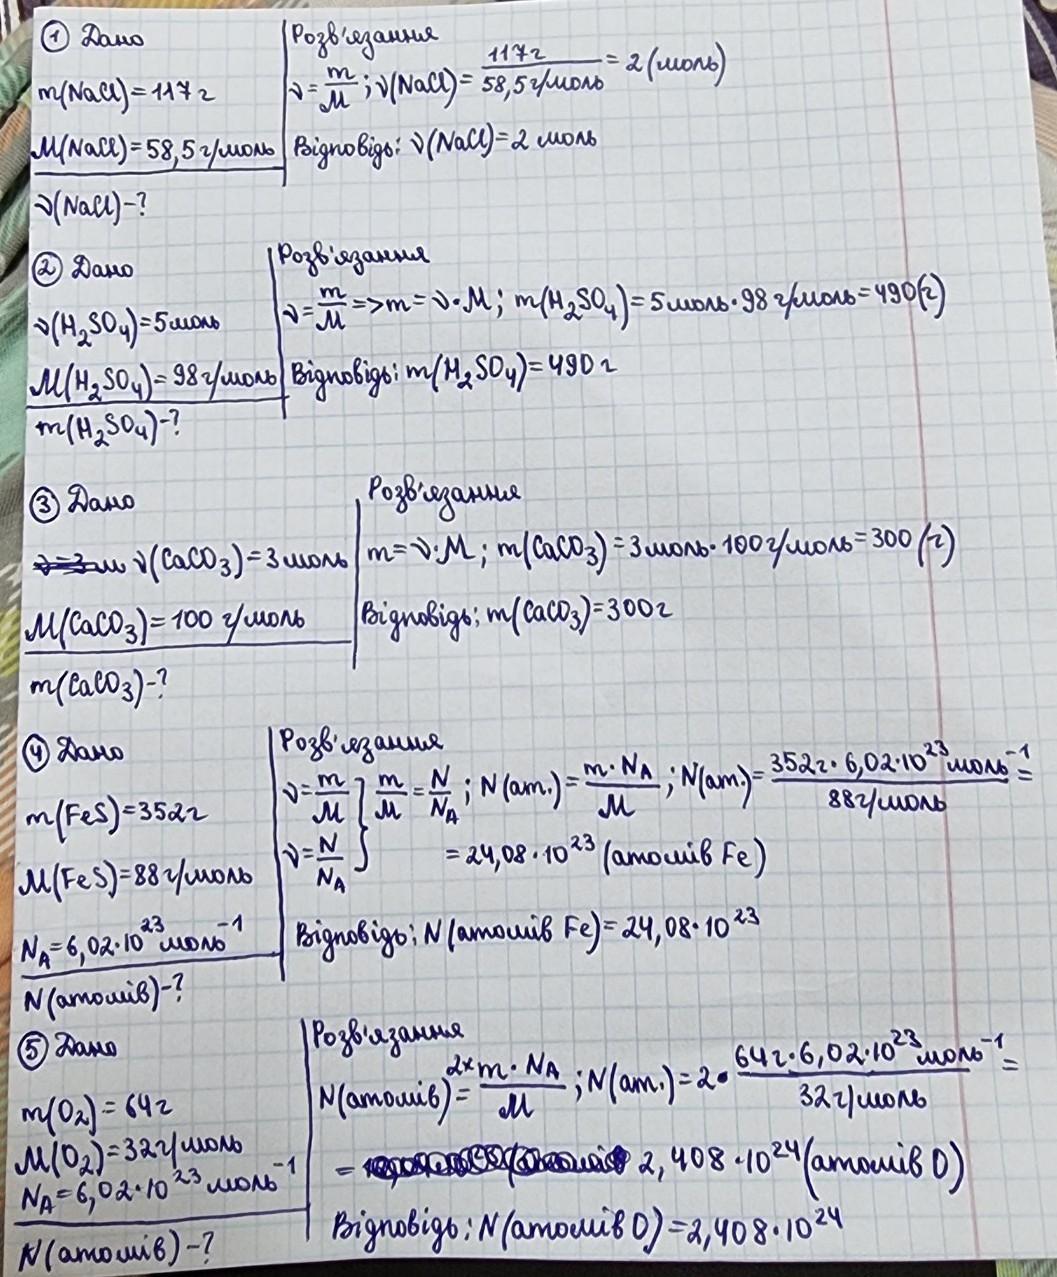 ① Дано
m(NaCl)=117г
M(NaCl)=58,5г/моль
ν(NaCl)-?
Розв'язання
ν=m/M; ν(NaCl)=117г/58,5г/моль=2(моль)
Відповідь: ν(NaCl)=2 моль
② Дано
ν(H₂SO₄)=5моль
M(H₂SO₄)=98г/моль
m(H₂SO₄)-?
Розв'язання
ν=m/M=>m=ν·M; m(H₂SO₄)=5моль·98г/моль=490(г)
Відповідь: m(H₂SO₄)=490г
③ Дано
ν(CaCO₃)=3моль
M(CaCO₃)=100 г/моль
m(CaCO₃)-?
Розв'язання
m=ν·M; m(CaCO₃)=3моль·100г/моль=300(г)
Відповідь: m(CaCO₃)=300г
④ Дано
m(FeS)=352г
M(FeS)=88г/моль
N_A=6,02·10²³моль⁻¹
N(атомів)-?
Розв'язання
ν=m/M
ν=N/N_A
] m/M=N/N_A; N(ат.)=m·N_A/M; N(ат.)=352г·6,02·10²³моль⁻¹/88г/моль=
=24,08·10²³(атомів Fe)
Відповідь: N(атомів Fe)=24,08·10²³
⑤ Дано
m(O₂)=64г
M(O₂)=32г/моль
N_A=6,02·10²³моль⁻¹
N(атомів)-?
Розв'язання
N(атомів)=2×m·N_A/M; N(ат.)=2·64г·6,02·10²³моль⁻¹/32г/моль=
=2,408·10²⁴(атомів O)
Відповідь: N(атомів O)=2,408·10²⁴